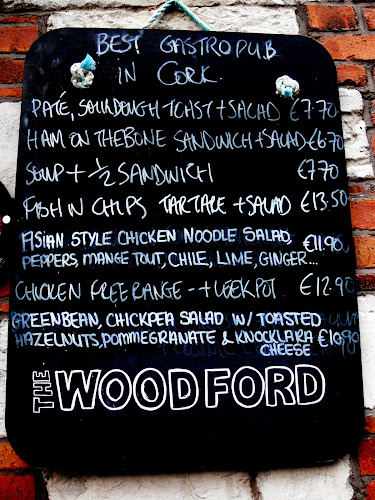 BEST GASTROPUB
IN CORK.
PATÉ, SOURDOUGH TOAST + SALAD €7.70
HAM ON THE BONE SANDWICH + SALAD €6.70
SOUP + ½ SANDWICH €7.70
FISH N CHIPS TARTARE + SALAD €13.50
ASIAN STYLE CHICKEN NOODLE SALAD,
PEPPERS, MANGE TOUT, CHILE, LIME, GINGER... €11.90
CHICKEN FREE RANGE -- + LEEK POT. €12.90
GREENBEAN, CHICKPEA SALAD W/ TOASTED
HAZELNUTS, POMMEGRANATE & KNOCKLARA €10.90
CHEESE
THE WOODFORD